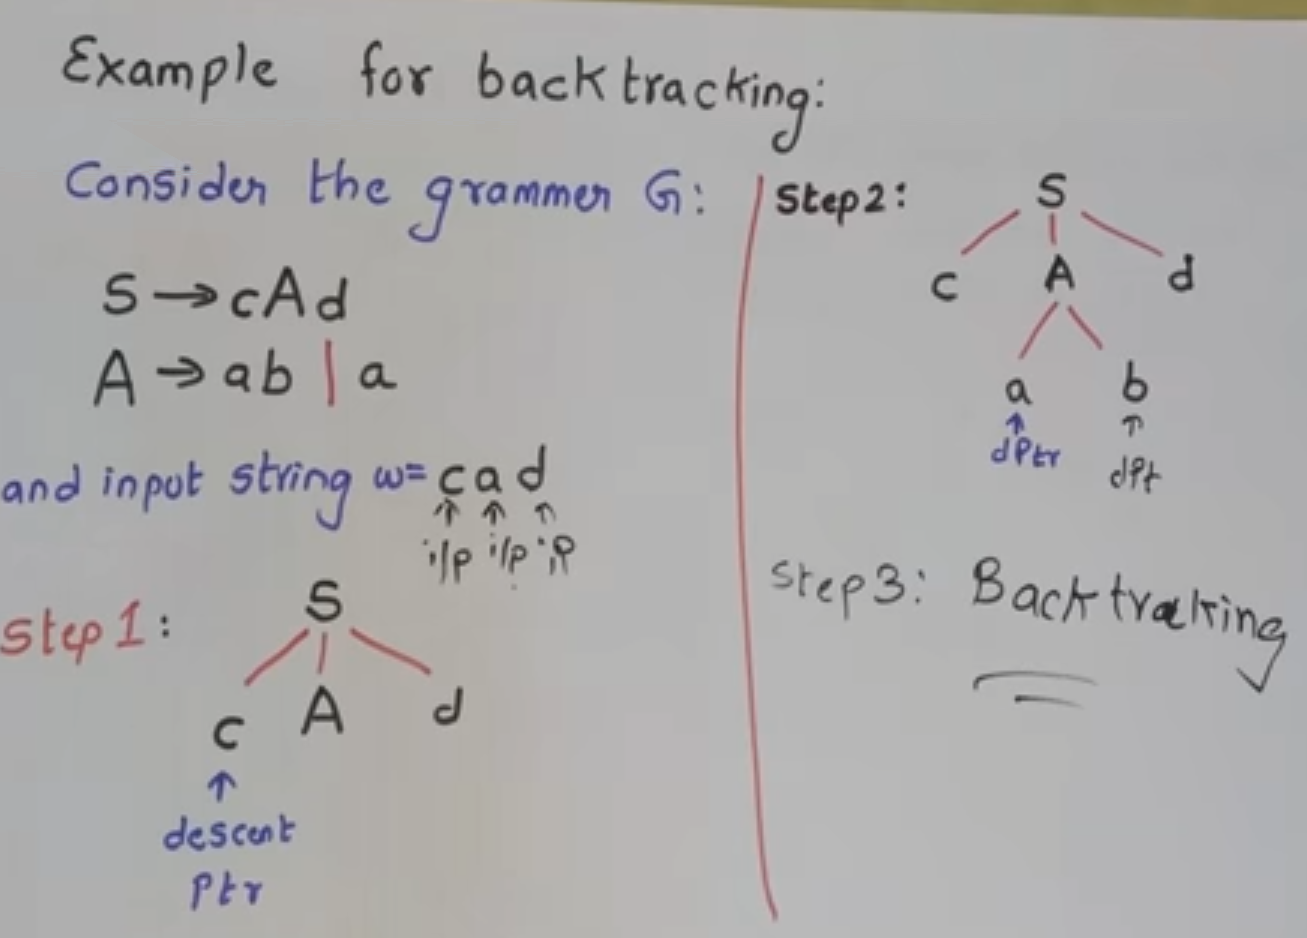 Example for backtracking:
Consider the grammer G:
S → cAd
A → ab | a
and input string w= cad
i/p i/p i/p
Step 1:
S
c A d
descent
Ptr
Step2:
S
c A d
a b
dPtr dPt
Step3: Backtracking